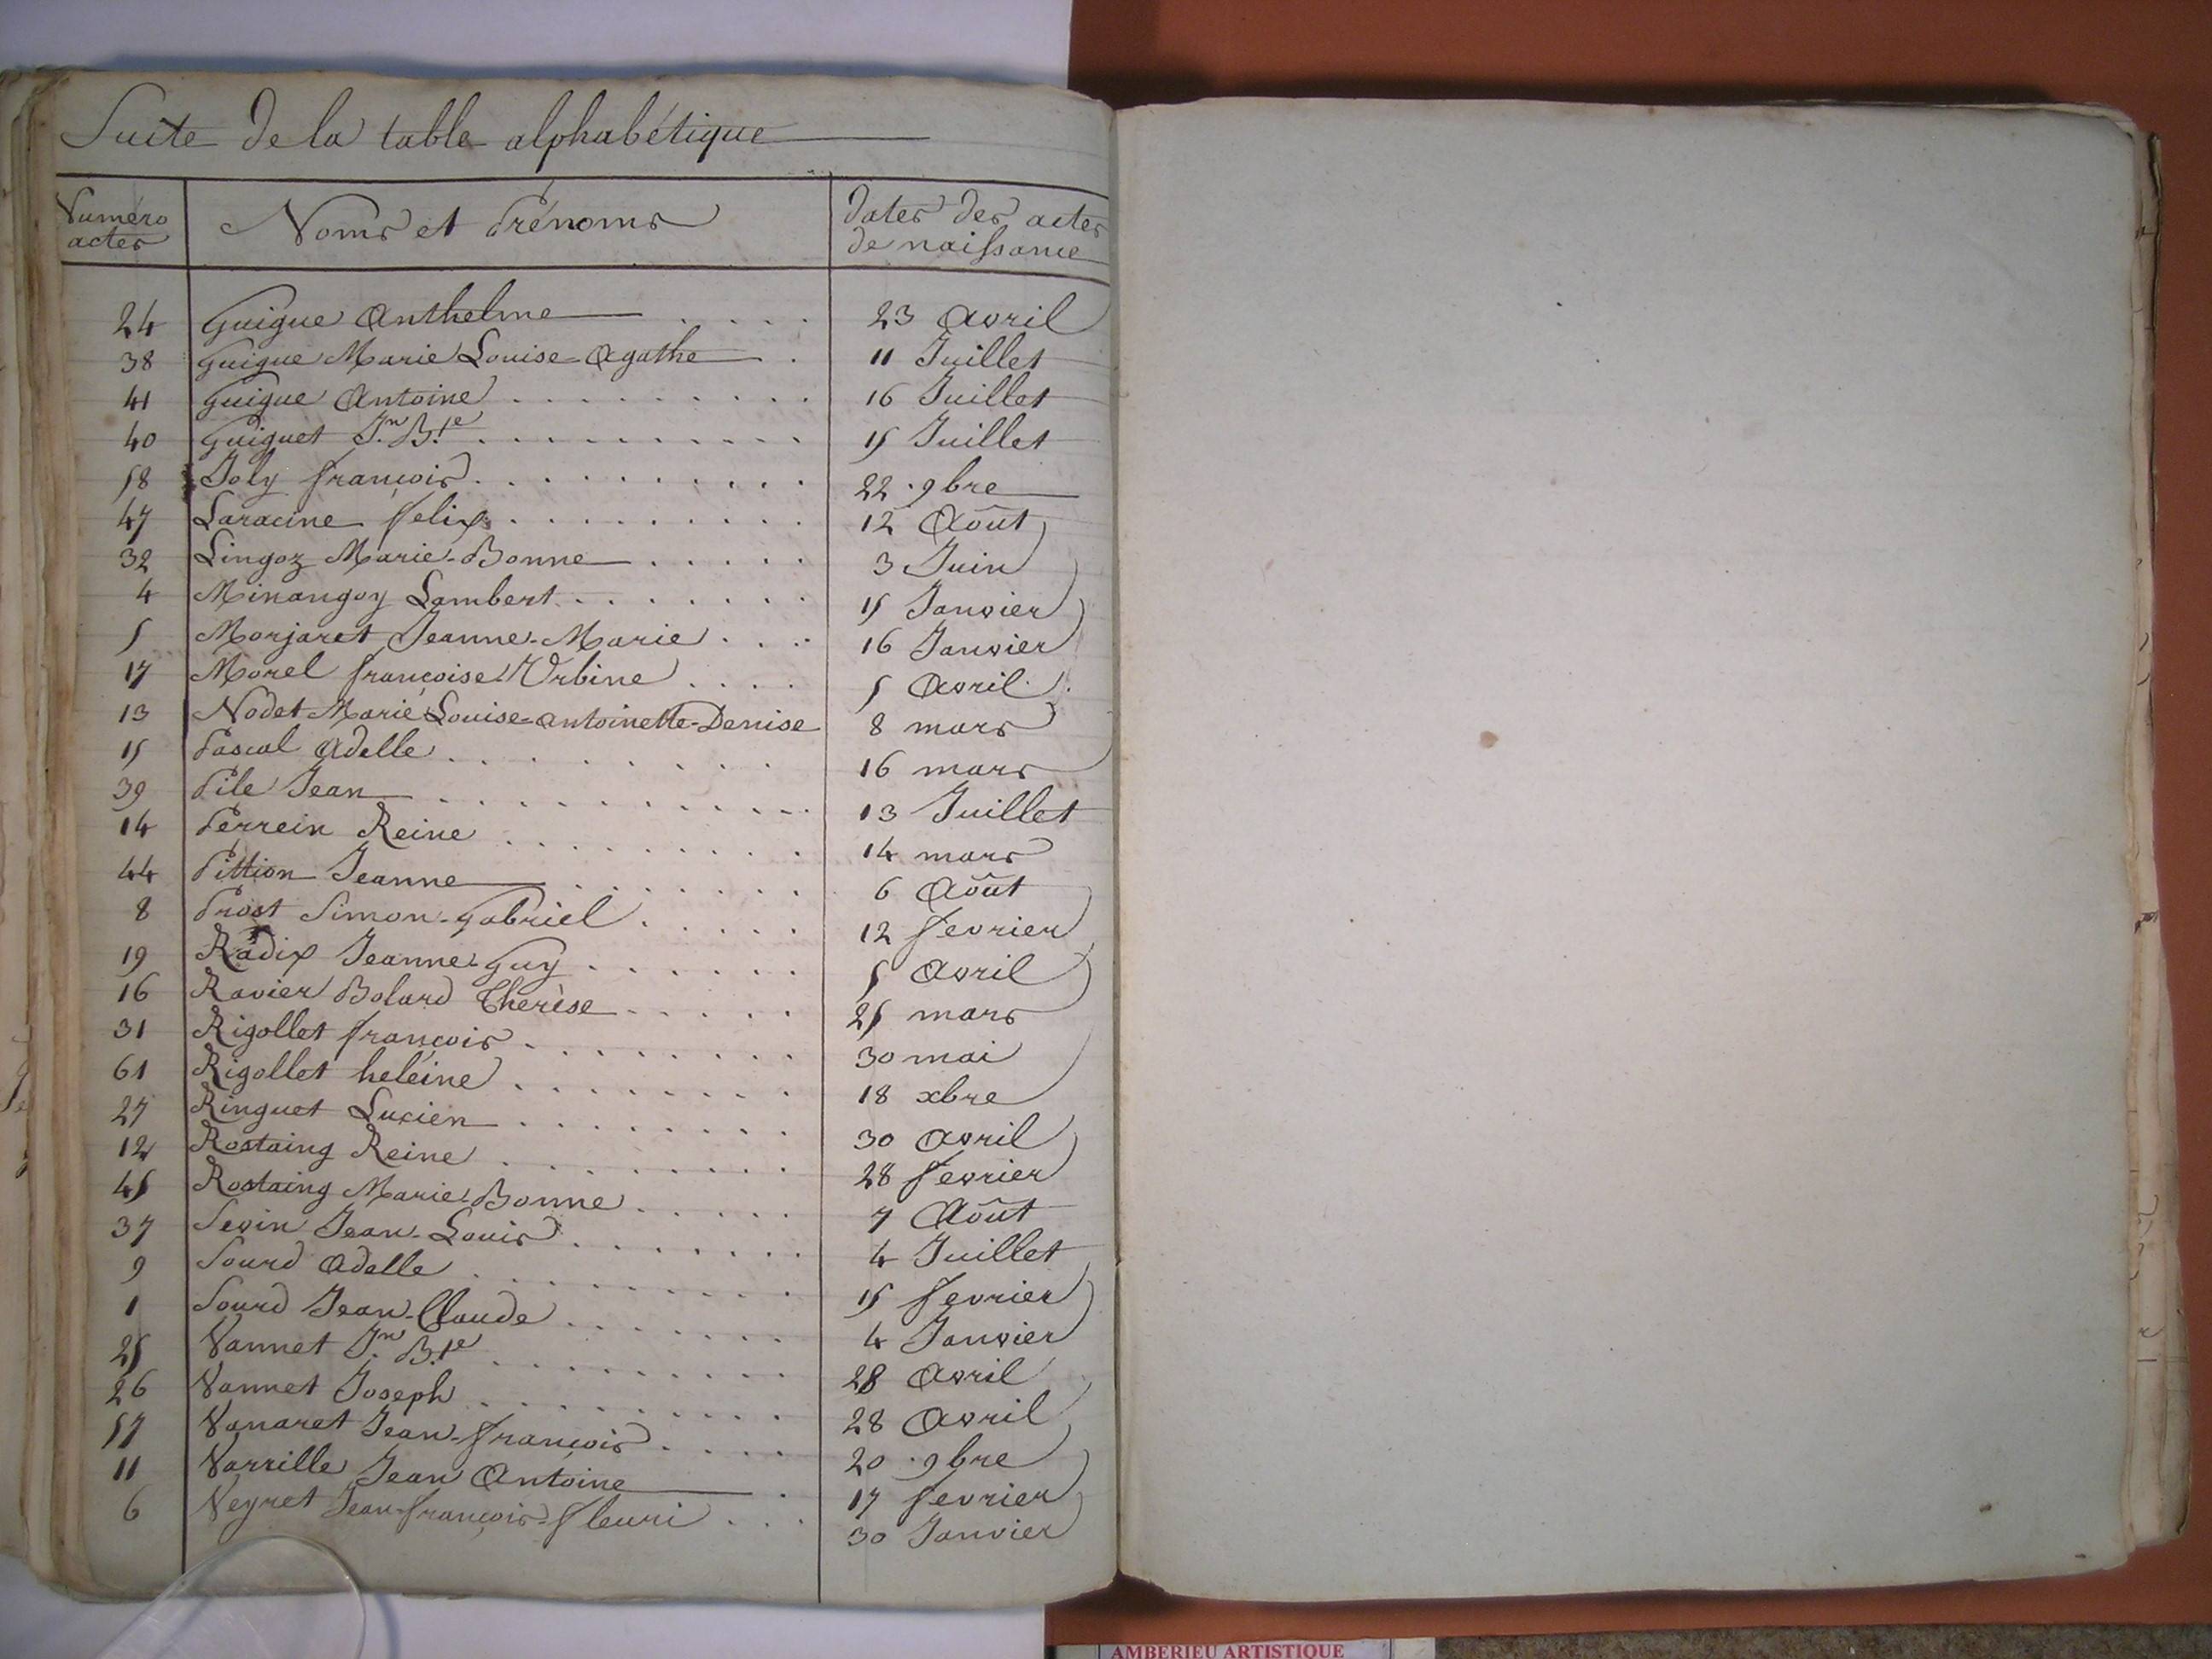 Suite de la table alphabétique
Numéro actes Noms et Prénoms dates des actes de naissance
24 Guigue Anthelme 23 Avril
38 Guigue Marie Louise-Agathe 11 Juillet
41 Guigue Antoine 16 Juillet
40 Guiguet Jn. Bte. 15 Juillet
58 Joly françois 22 9bre
47 Laracine felix 12 Août
32 Lingoz Marie-Bonne 3 Juin
4 Minangoy Lambert 15 Janvier
5 Morjaret Jeanne-Marie 16 Janvier
17 Morel françoise Urbine 5 Avril
13 Nodet Marie Louise-antoinette-Denise 8 mars
15 Pascal Adelle 16 mars
39 Pile Jean 13 Juillet
14 Perrein Reine 14 mars
44 Pittion Jeanne 6 Août
8 Prost Simon-Gabriel 12 fevrier
19 Radix Jeanne-Guy 5 Avril
16 Ravier Bolard Therèse 25 mars
31 Rigollet françois 30 mai
61 Rigollet heléine 18 xbre
27 Ringuet Lucien 30 Avril
12 Rostaing Reine 28 fevrier
45 Rostaing Marie-Bonne 7 Août
37 Sevin Jean-Louis 4 Juillet
9 Sourd Adelle 15 fevrier
1 Sourd Jean-Claude 4 Janvier
25 Vannet Jn. Bte. 28 Avril
26 Vannet Joseph 28 Avril
57 Vanaret Jean-françois 20 9bre
11 Varrille Jean Antoine 17 fevrier
6 Veyret Jean-françois-fleuri 30 Janvier
AMBERIEU ARTISTIQUE